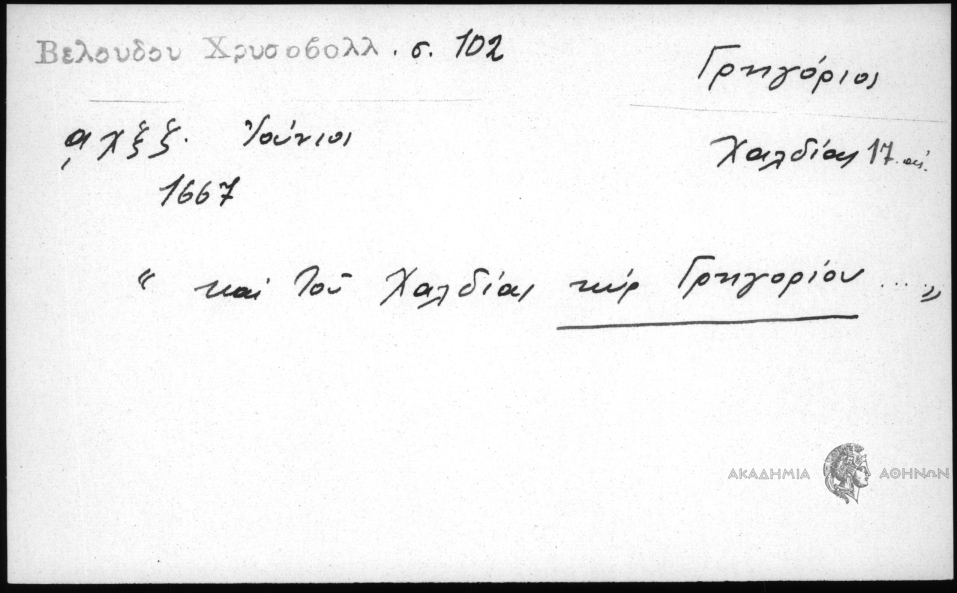 Βελουδου Χρυσοβολλ. σ. 102
Γρηγόριος
͵αχξζ. Ἰούνιος
Χαλδίας 17. αἰ.
1667
“ καὶ τοῦ Χαλδίας κύρ Γρηγορίου ... „
ΑΚΑΔΗΜΙΑ ΑΘΗΝΩΝ